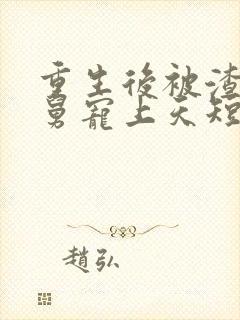 重生後被渣
舅寵上天短
趙弘